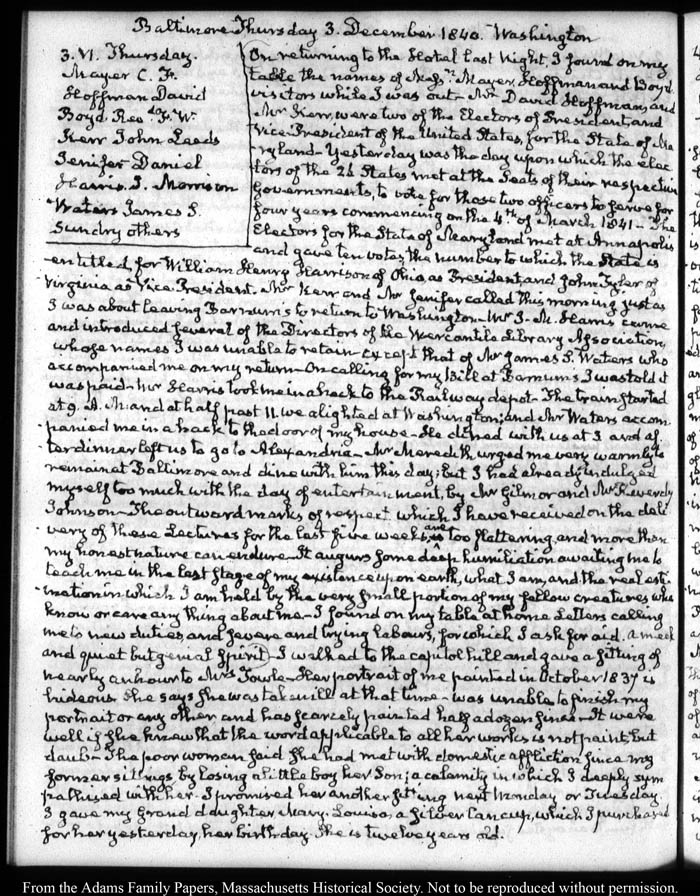 Baltimore Thursday 3. December 1840. Washington
3. VI. Thursday.
Mayer C. F.
Hoffman David
Boyd Rev. F. W.
Kerr John Leeds
Jenifer Daniel
Harris. J. Morrison
Waters James S.
Sundry others
On returning to the Hotel last Night, I found on my
table the names of Mayer, Hoffman and Boyd
visitors while I was out— Mr. David Hoffman, and
Mr Kerr, were two of the Electors of President, and
Vice-President of the United States, for the State of Ma
ryland— Yesterday was the day upon which the elec
tors of the 26 States met at the Seats of their respective
Governments, to vote for those two officers to serve for
four years commencing on the 4th of March 1841— The
Electors for the State of Maryland met at Annapolis
and gave ten votes, the number to which the State is
entitled, for William Henry Harrison of Ohio as President, and John Tyler of
Virginia as Vice-President. Mr Kerr and Mr Jenifer called this morning just as
I was about leaving Barnum's to return to Washington— Mr J. M. Harris came
and introduced several of the Directors of the Mercantile Library Association,
whose names I was unable to retain except that of Mr James S. Waters who
accompanied me on my return— On calling for my Bill at Barnum's I was told it
was paid— Mr Harris took me in a hack to the Railway depot— The train started
at 9. A.M. and at half past 11. we alighted at Washington; and Mr Waters accom
panied me in a hack to the door of my house— He dined with us at 3 and af
ter dinner left us to go to Alexandria— Mr Meredith urged me very warmly to
remain at Baltimore and dine with him this day; but I had already indulged
myself too much with the day of entertainment, by Mr Gilmor and Mr Reverdy
Johnson— The outward marks of respect which I have received on the deli
very of these Lectures for the last five weeks, are too flattering, and more than
my honest nature can endure— It augurs some deep humiliation awaiting me to
teach me in the last stage of my existence upon earth, what I am, and the real esti
mation in which I am held by the very small portion of my fellow creatures who
know or care any thing about me— I found on my table at home Letters calling
me to new duties, and severe and trying labours, for which I ask for aid. a meek
and quiet but genial spirit— I walked to the capitol hill and gave a sitting of
nearly an hour to Mrs Towle— Her portrait of me painted in October 1837 is
hideous. She says she was taken ill at that time— was unable to finish my
portrait or any other and has scarcely painted half a dozen since— It were
well if she knew that the word applicable to all her works is not paint, but
daub— The poor woman said she had met with domestic affliction since my
former sittings by losing a little boy her Son; a calamity in which I deeply sym
pathised with her. I promised her another sitting next Monday or Tuesday.
I gave my Grand daughter, Mary-Louisa, a Silver Can cup, which I purchased
for her yesterday, her birthday. She is twelve years old.
From the Adams Family Papers, Massachusetts Historical Society. Not to be reproduced without permission.